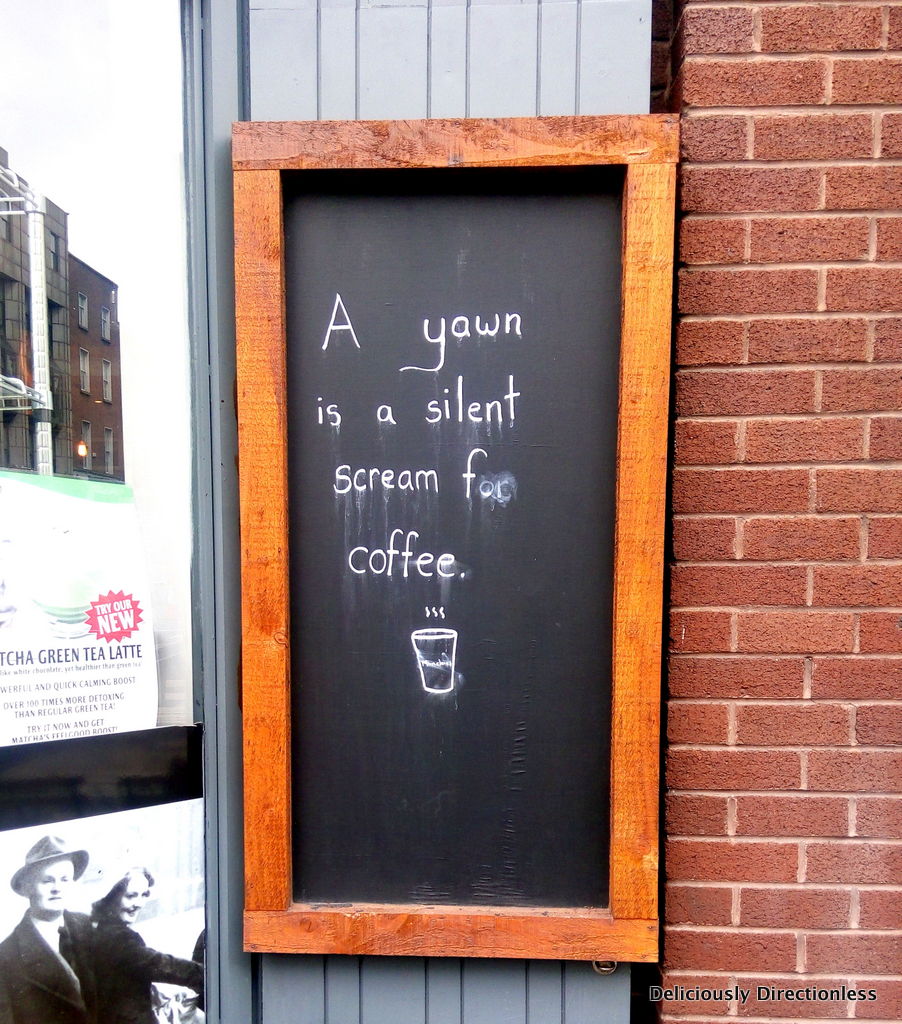 A yawn
is a silent
scream for
coffee.
TRY OUR
NEW
TCHA GREEN TEA LATTE
like white chocolate, yet healthier than green tea
WERFUL AND QUICK CALMING BOOST
OVER 100 TIMES MORE DETOXING
THAN REGULAR GREEN TEA!
TRY IT NOW AND GET
MATCHA'S FEELGOOD BOOST!
Deliciously Directionless